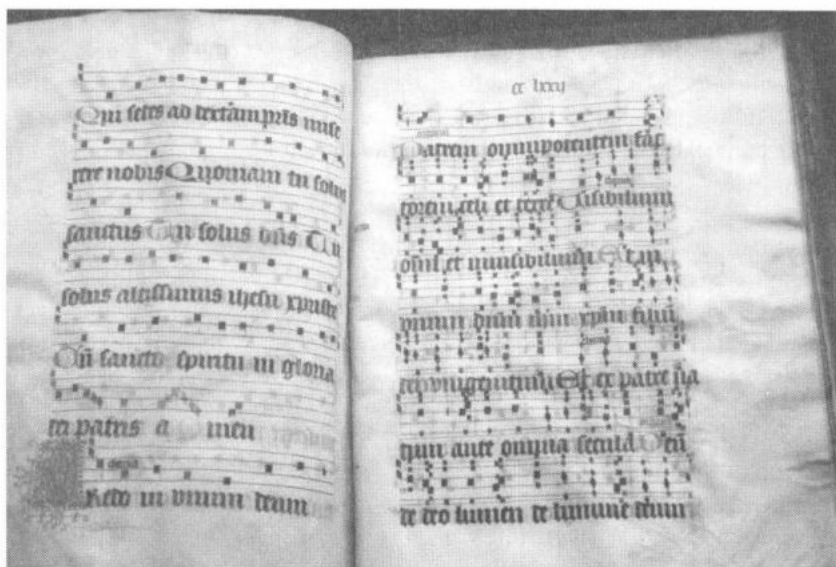 Qui sedes ad dextam pris mise
rere nobis Quoniam tu solus
sanctus Tu solus dns Tu
solus altissimus ihesu xpriste
Cu sancto spiritu in gloria
dei patris a men
Credo in vnum deum
cc lxxij
Patrem omnipotentem fac
torem celi et terre Uisibilium
oim et inuisibilium Et in
vnum dnm ihm xpm filium
dei vnigenitum Et ex patre na
tum ante omnia secula Deu
de deo lumen de lumine deum